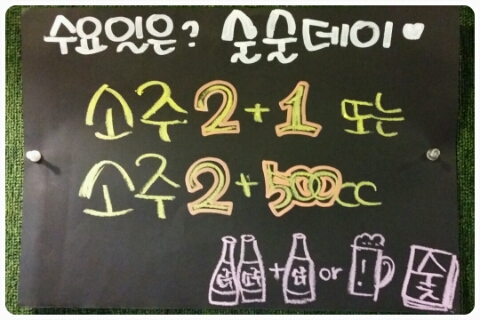 수요일은? 술술데이♥
소주 2+1 또는
소주 2+500cc
+ or !